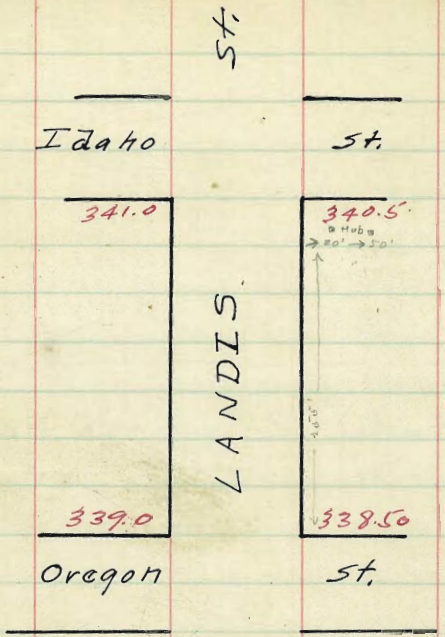 St.
Idaho St.
341.0 340.5
Hub
20' 50'
LANDIS
339.0 338.50
Oregon St.